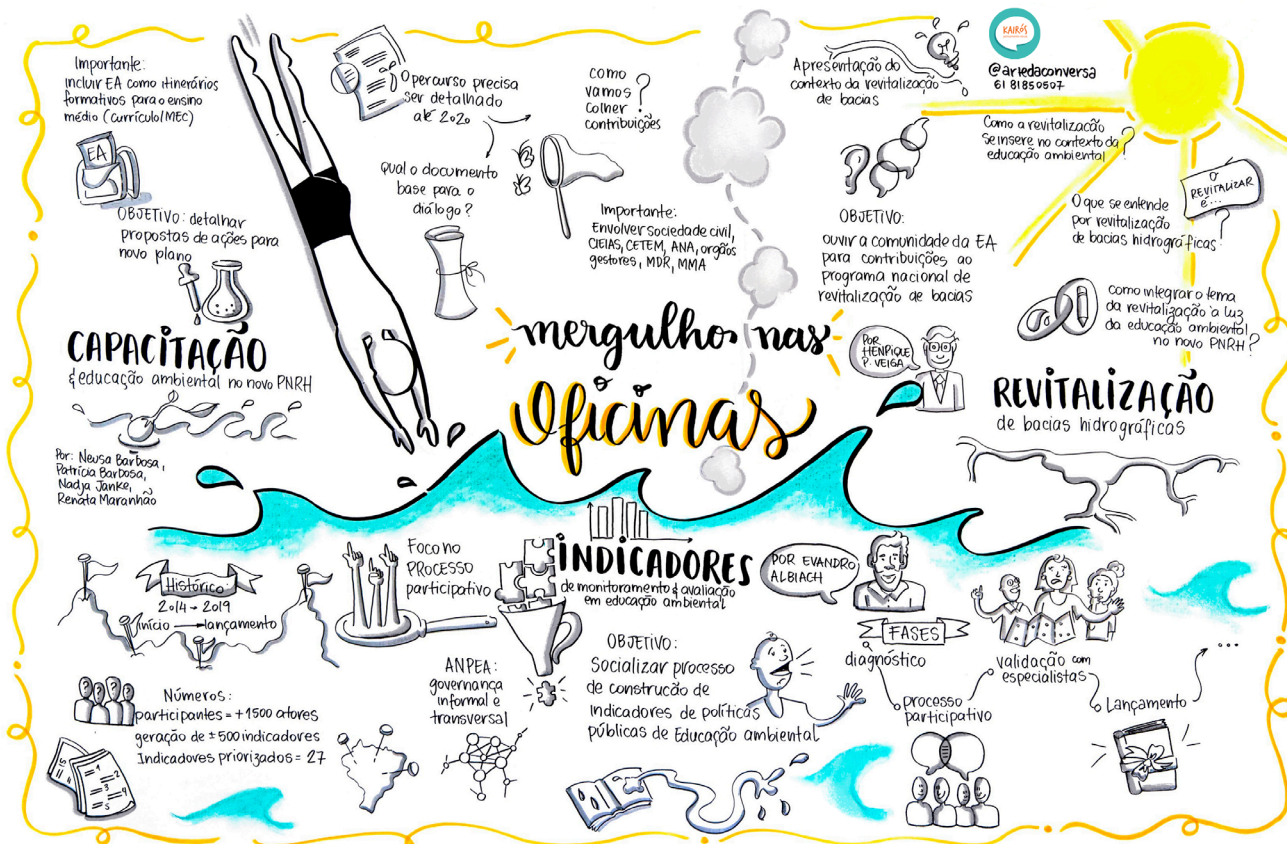 Importante:
incluir EA como itinerários
formativos para o ensino
médio (currículo/MEC)
EA
OBJETIVO: detalhar
propostas de ações para
novo plano
CAPACITAÇÃO
& educação ambiental no novo PNRH
Por: Neusa Barbosa,
Patrícia Barbosa,
Nadja Janke,
Renata Maranhão
O percurso precisa
ser detalhado
até 2020
qual o documento
base para o
diálogo?
como
vamos
colher
contribuições?
Importante:
Envolver sociedade civil,
CIEIAS, CETEM, ANA, orgãos
gestores, MDR, MMA
mergulho nas
Oficinas
Apresentação do
contexto da revitalização
de bacias
KAIRÓS
@artedaconversa
61 81850507
Como a revitalizacão
se insere no contexto da
educação ambiental?
OBJETIVO:
ouvir a comunidade da EA
para contribuições ao
programa nacional de
revitalização de bacias
O que se entende
por revitalização
de bacias hidrográficas?
O
REVITALIZAR
é...
como integrar o tema
da revitalização à luz
da educação ambiental
no novo PNRH?
POR
HENRIQUE
P. VEIGA
REVITALIZAÇÃO
de bacias hidrográficas
Histórico:
2014 → 2019
início → lançamento
Números:
participantes = +1500 atores
geração de ±500 indicadores
Indicadores priorizados = 27
Foco no
PROCESSO
participativo
ANPEA:
governança
informal e
transversal
INDICADORES
de monitoramento & avaliação
em educação ambiental
POR EVANDRO
ALBIACH
OBJETIVO:
Socializar processo
de construcão de
indicadores de políticas
públicas de Educação ambiental
FASES
diagnóstico
processo
participativo
validação com
especialistas
Lançamento
...